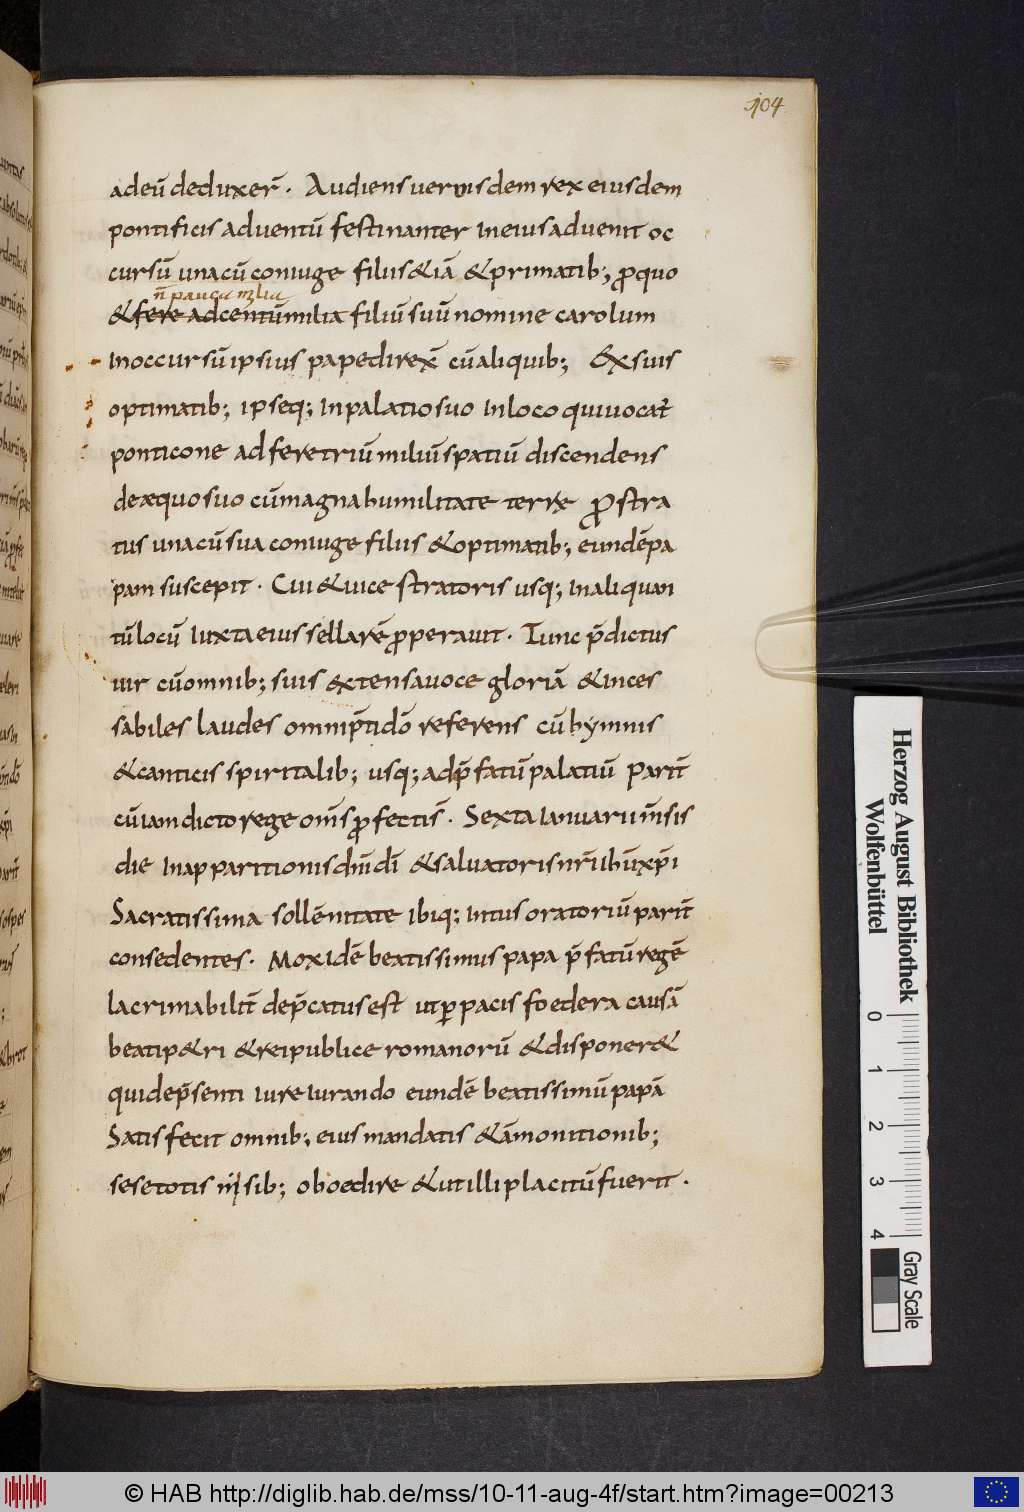 104
adeū deduxer̄. Audiens uero isdem rex eiusdem
pontificis aduentū festinanter in eius aduenit oc
cursū una cū coniuge filiis & iā & primatib; ꝓ quo
n̄ pauca milia
& fere ad centū milia filiū suū nomine carolum
In occursū ipsius pape direx̄ cū aliquib; Ex suis
optimatib; ipseq; In palatio suo In loco qui uocat̄
ponticone ad fere triū miliū spatiū discendens
de æquo suo cū magna humilitate terræ ꝓstra
tus una cū sua coniuge filiis & optimatib; eundē pa
pam suscepit. Cui & uice stratoris usq; In aliquan
tū locū Iuxta eius sellarē ꝓperauit. Tunc p̄dictus
uir cū omnib; suis extensa uoce gloriā & inces
sabiles laudes omnip̄ti dō referens cū hymnis
& canticis spiritalib; usq; ad p̄fatū palatiū Parit̄
cū iam dicto rege om̄s ꝓfectis. Sexta Ianuarii m̄sis
die In apparitionis dn̄i dī & saluatoris nr̄i ihū xp̄i
Sacratissima sollēnitate ibiq; intus oratoriū parit̄
consedentes. Mox Idē beatissimus papa p̄fatū regē
lacrimabilit̄ dep̄catus est ut ꝑ pacis foedera causā
beati p&ri & reipublice romanorū & disponer&
qui de p̄senti Iure Iurando eundē beatissimū papā
Satisfecit omnib; eius mandatis & āmonitionib;
sese totis nisib; oboedire & ut illi placitū fuerit.
Herzog August Bibliothek
Wolfenbüttel
0 1 2 3 4
Gray Scale
© HAB http://diglib.hab.de/mss/10-11-aug-4f/start.htm?image=00213